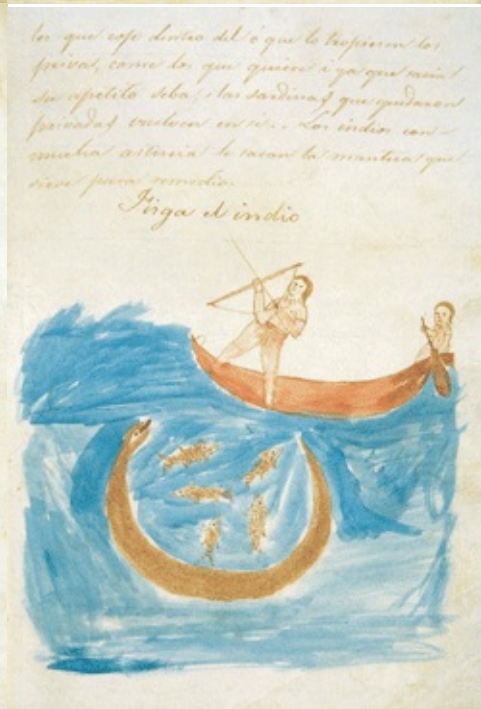 los que coje dentro del c que lo tropiesan los
priva, come los que quiere i ya que sacia
su apetito seba, i las sardinas que quedaron
privadas vuelven en si.. Los indios con
mucha astucia le sacan la manteca que
sirve para remedio.
Fisga el indio